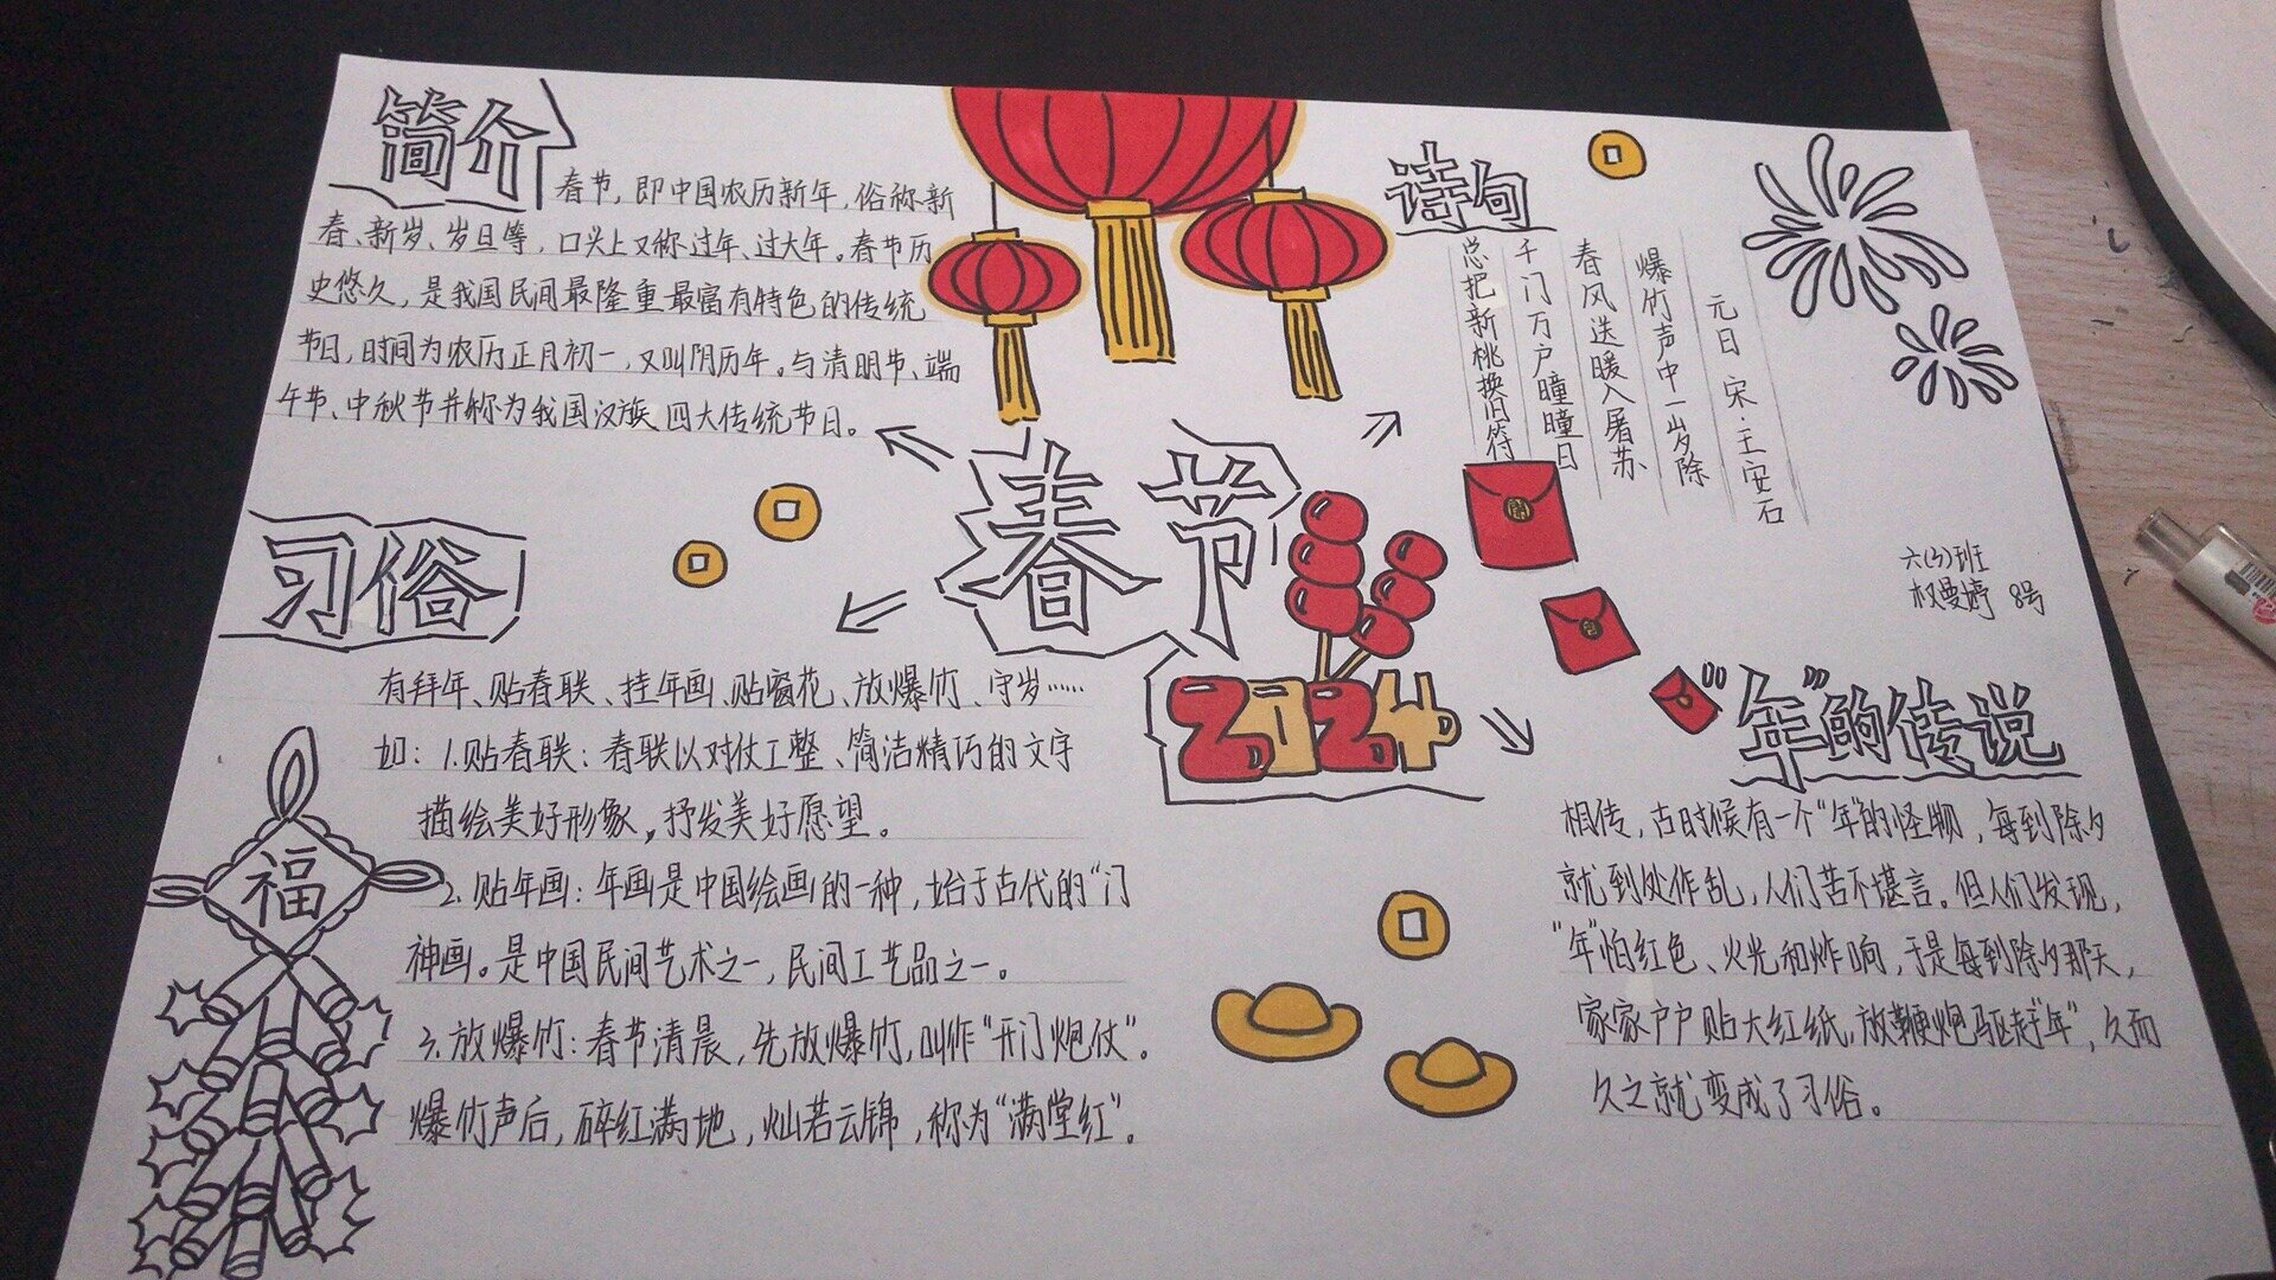 简介
春节，即中国农历新年，俗称新
春、新岁、岁旦等，口头上又称过年、过大年。春节历
史悠久，是我国民间最隆重最富有特色的传统
节日，时间为农历正月初一，又叫阴历年。与清明节、端
午节、中秋节并称为我国汉族四大传统节日。
诗句
元日 宋·王安石
爆竹声中一岁除
春风送暖入屠苏
千门万户曈曈日
总把新桃换旧符
六(3)班
权曼婷 8号
春节
2024
习俗
有拜年、贴春联、挂年画、贴窗花、放爆竹、守岁……
如：1.贴春联：春联以对仗工整、简洁精巧的文字
描绘美好形像，抒发美好愿望。
2.贴年画：年画是中国绘画的一种，始于古代的“门
神画。是中国民间艺术之一，民间工艺品之一。
3.放爆竹：春节清晨，先放爆竹，叫作“开门炮仗”。
爆竹声后，碎红满地，灿若云锦，称为“满堂红”。
福
“年”的传说
相传，古时候有一个“年”的怪物，每到除夕
就到处作乱，人们苦不堪言。但人们发现，
“年”怕红色、火光和炸响，于是每到除夕那天，
家家户户贴大红纸，放鞭炮驱赶“年”，久而
久之就变成了习俗。